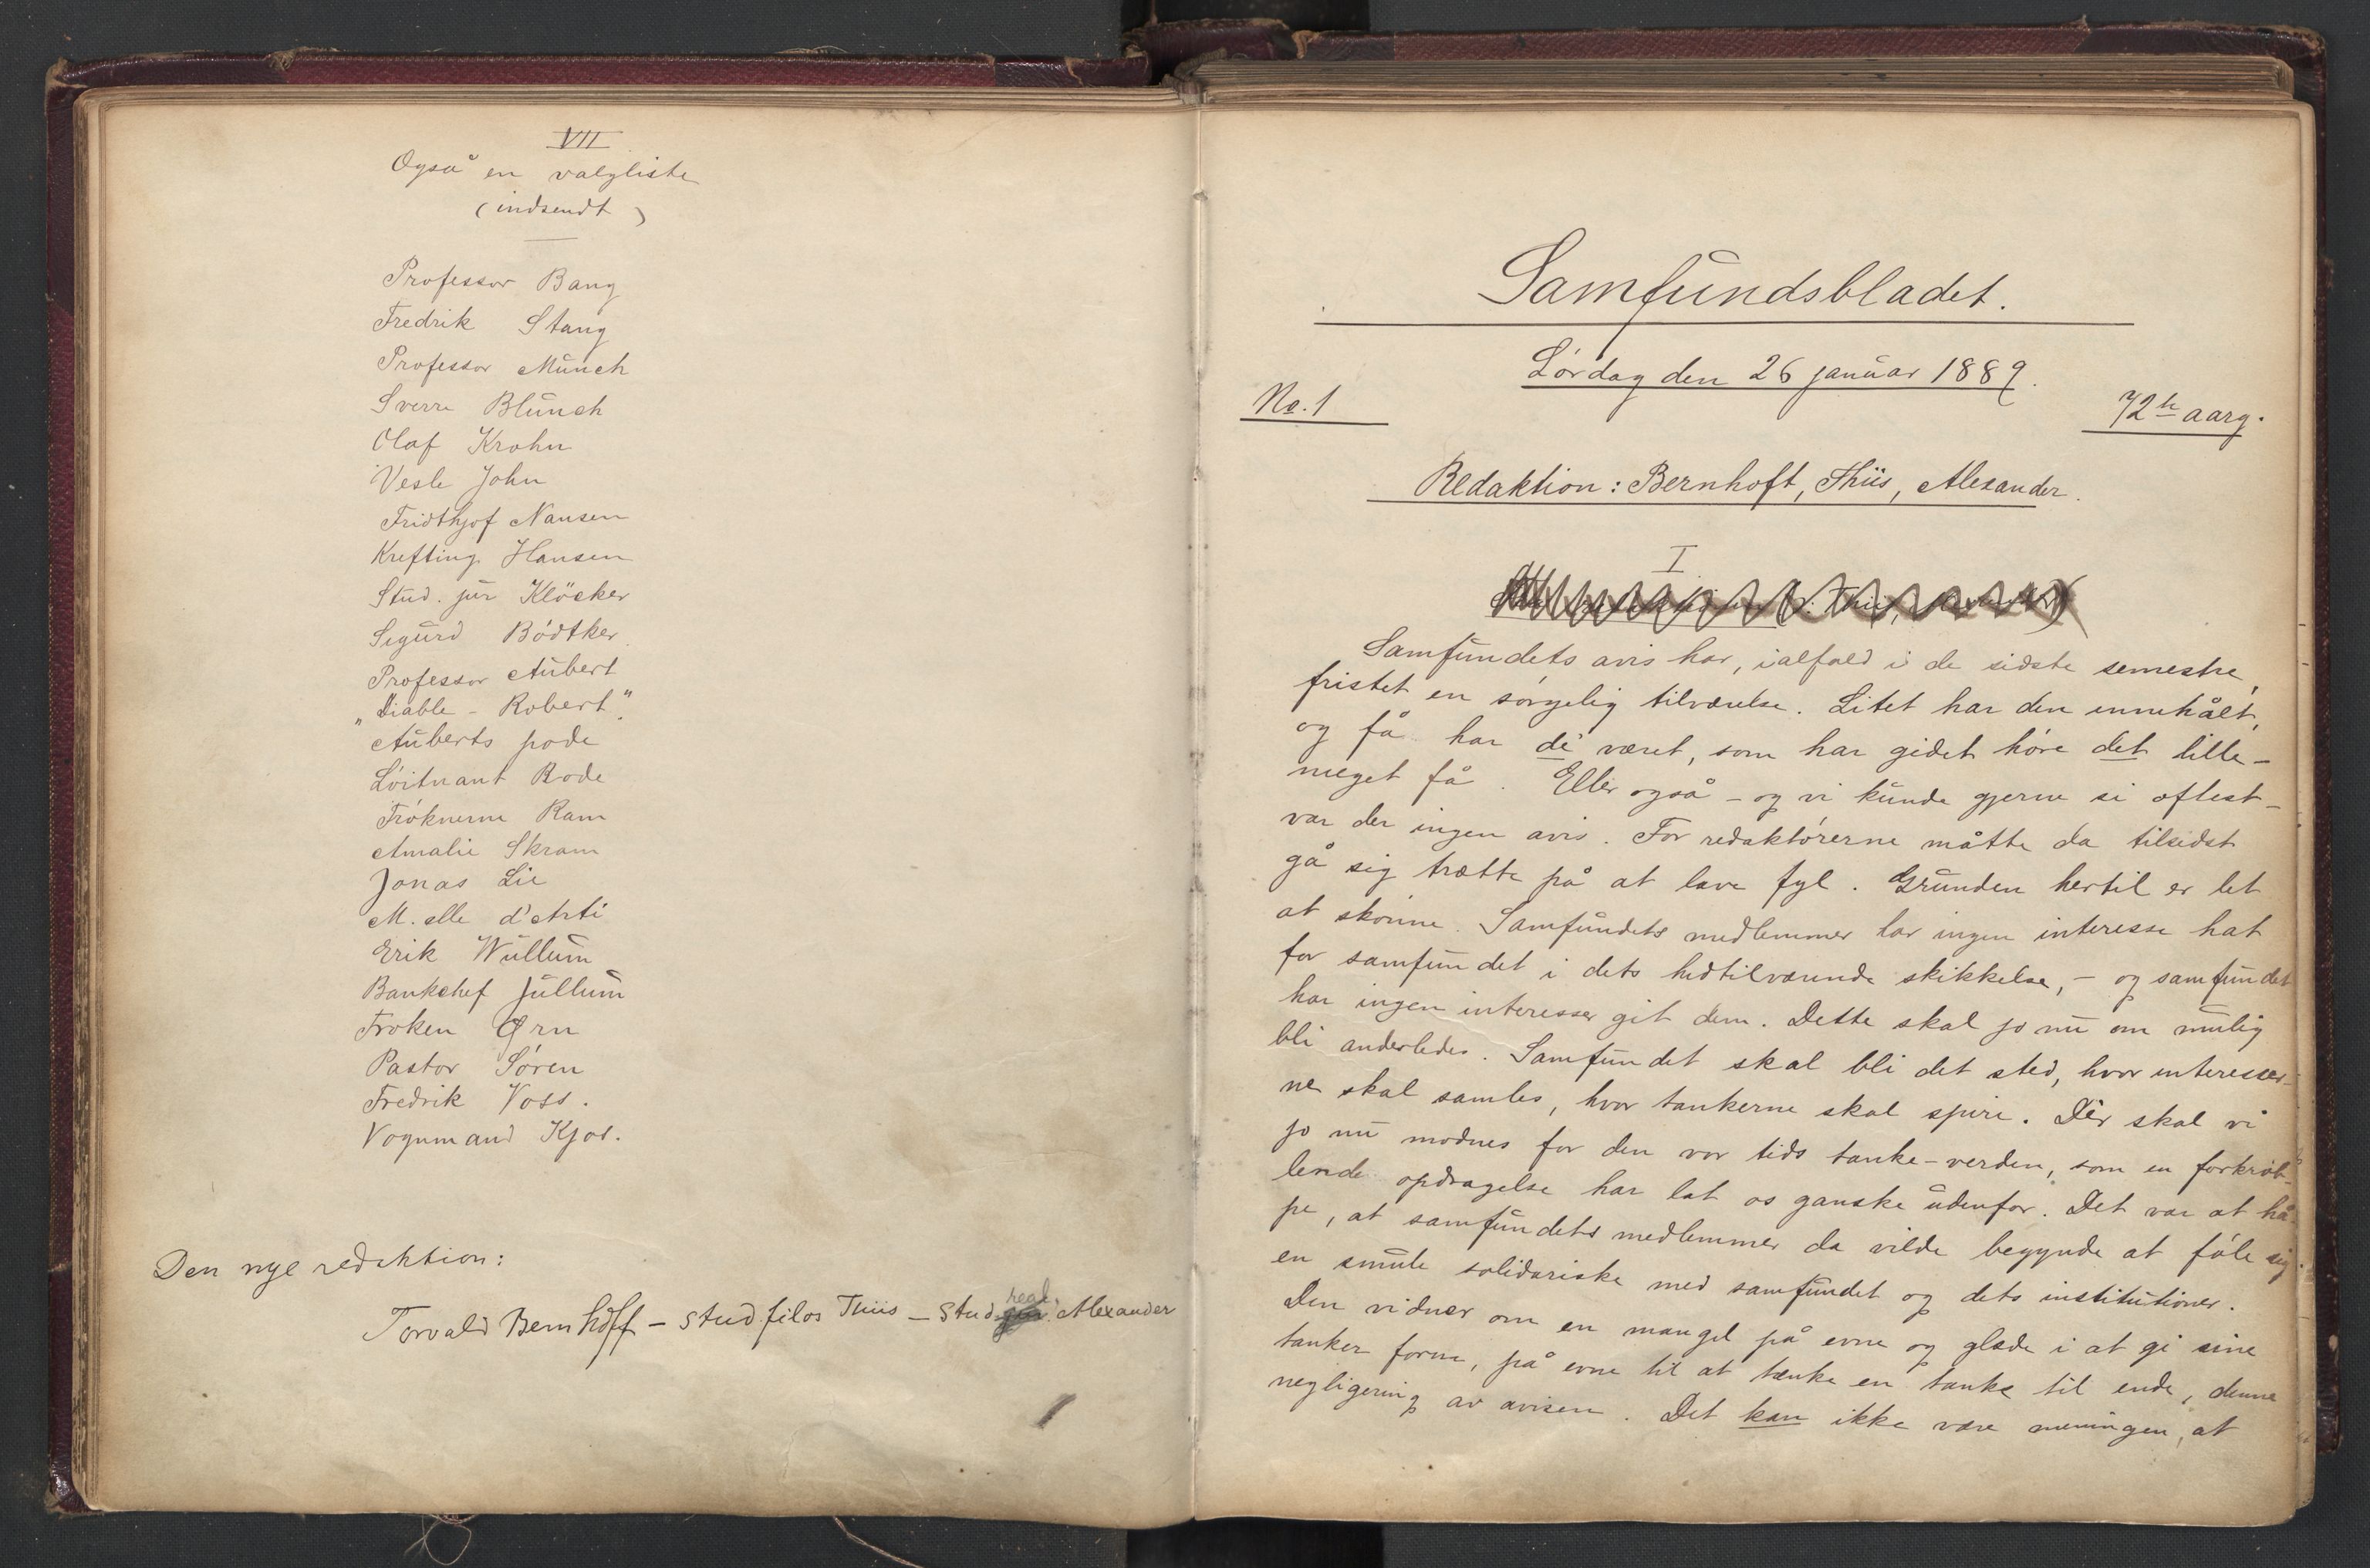 VII
Også en valgliste
(indsendt)
Professor Bang
Fredrik Stang
Professor Münch
Sverre Blünch
Olaf Krohn
Vesle John
Fridthjof Nansen
Krefting Hansen
Stud. jur Klöcker
Sigurd Bödtker
Professor Aubert
"Diable - Robert"
Auberts pode
Löitnant Rode
Fröknerne Ram
Amalie Skram
Jonas Lie
M. elle d'Arti
Erik Wullum
Bankchef Jullum
Frøken Ørn
Pastor Sören
Fredrik Voss.
Vognmand Kjos.
Den nye redaktion:
Torvald Bernhoff - stud filos Thiis - Stud real. Alexander
Samfundsbladet.
Lördag den 26 januar 1889.
No. 1
72de aarg.
Redaktion: Bernhoft, Thiis, Alexander.
I
Samfundets avis har, ialfald i de sidste semestre,
fristet en sörgelig tilværelse. Litet har den inneholdt,
og få har de været, som har gidet höre det lille -
meget få. Eller også - og vi kunde gjerne si oftest -
var der ingen avis. For redaktörerne måtte da tilsidst
gå sig trætte på at lave fyl. Grunden hertil er let
at skönne. Samfundets medlemmer har ingen interesse hat
for samfundet i dets hidtilværende skikkelse, - og samfundet
har ingen interesser git dem. Dette skal jo nu om mulig
bli anderledes. Samfundet skal bli det sted, hvor interesser-
ne skal samles, hvor tankerne skal spire. Dér skal vi
jo nu modnes for den vor tids tanke-verden, som en forkröb-
lende opdragelse har lat os ganske udenfor. Det var at hå-
pe, at samfundets medlemmer da vilde begynde at föle sig
en smule solidariske med samfundet og dets institutioner.
Den vidner om en mangel på evne og glæde i at gi sine
tanker form, på evne til at tænke en tanke til ende, denne
negligering av avisen. Det kan ikke være meningen, at